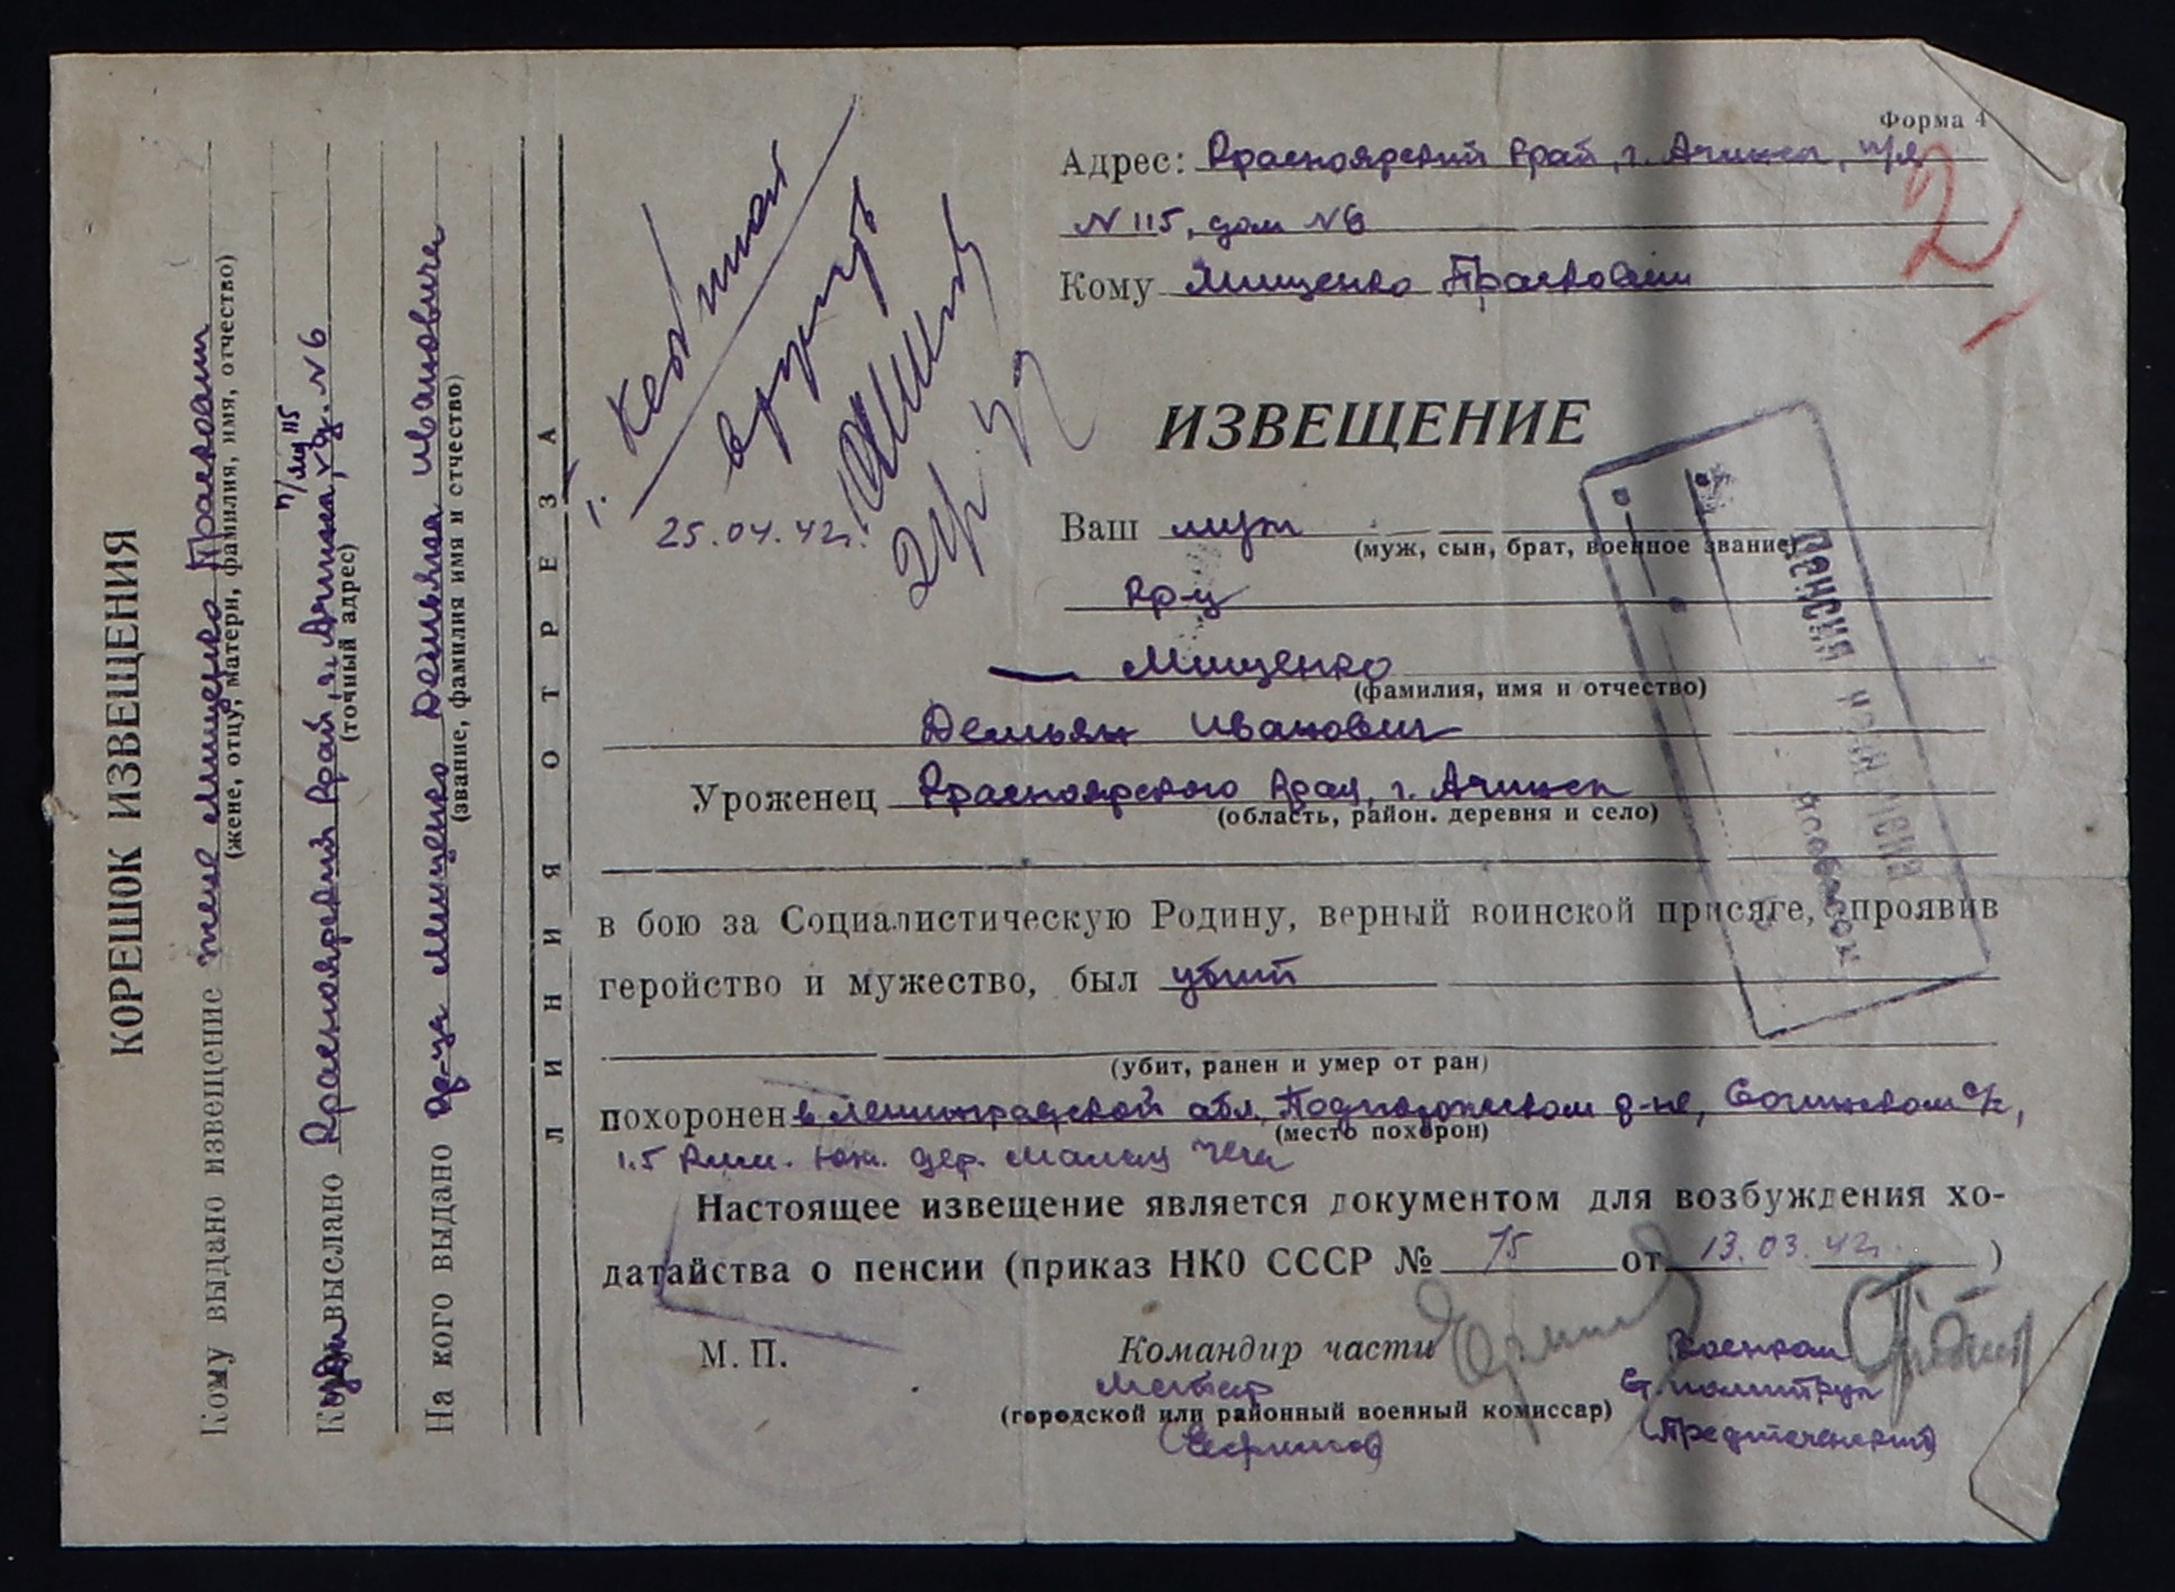 КОРЕШОК ИЗВЕЩЕНИЯ
Кому выдано извещение жене Мищенко Прасковии
(жене, отцу, матери, фамилия, имя, отчество)
п/ящ 115
Куда выслано Красноярский край, г. Ачинск, д. N 6
(точный адрес)
На кого выдано кр-ца Мищенко Демьяна Ивановича
(звание, фамилия имя и отчество)
ЛИНИЯ ОТРЕЗА
25.04.42г.
Форма 4
Адрес: Красноярский край, г. Ачинск, п/я
N 115, дом N 6
Кому Мищенко Прасковии
2
ИЗВЕЩЕНИЕ
Ваш муж
(муж, сын, брат, военное звание)
кр-ц
Мищенко
(фамилия, имя и отчество)
Демьян Иванович
Уроженец Красноярского края, г. Ачинск
(область, район. деревня и село)
в бою за Социалистическую Родину, верный воинской присяге, проявив
геройство и мужество, был убит
(убит, ранен и умер от ран)
похоронен в Ленинградской обл, Подпорожском р-не, с/с,
(место похорон)
1.5 клм. юж. дер.
Настоящее извещение является документом для возбуждения хо-
датайства о пенсии (приказ НКО СССР № 75 от 13.03.42г. )
М. П.
Командир части
Военком
Майор
Ст. политрук
(городской или районный военный комиссар)
(Ефимов)
(Предтеченский)
ПЕНСИЯ